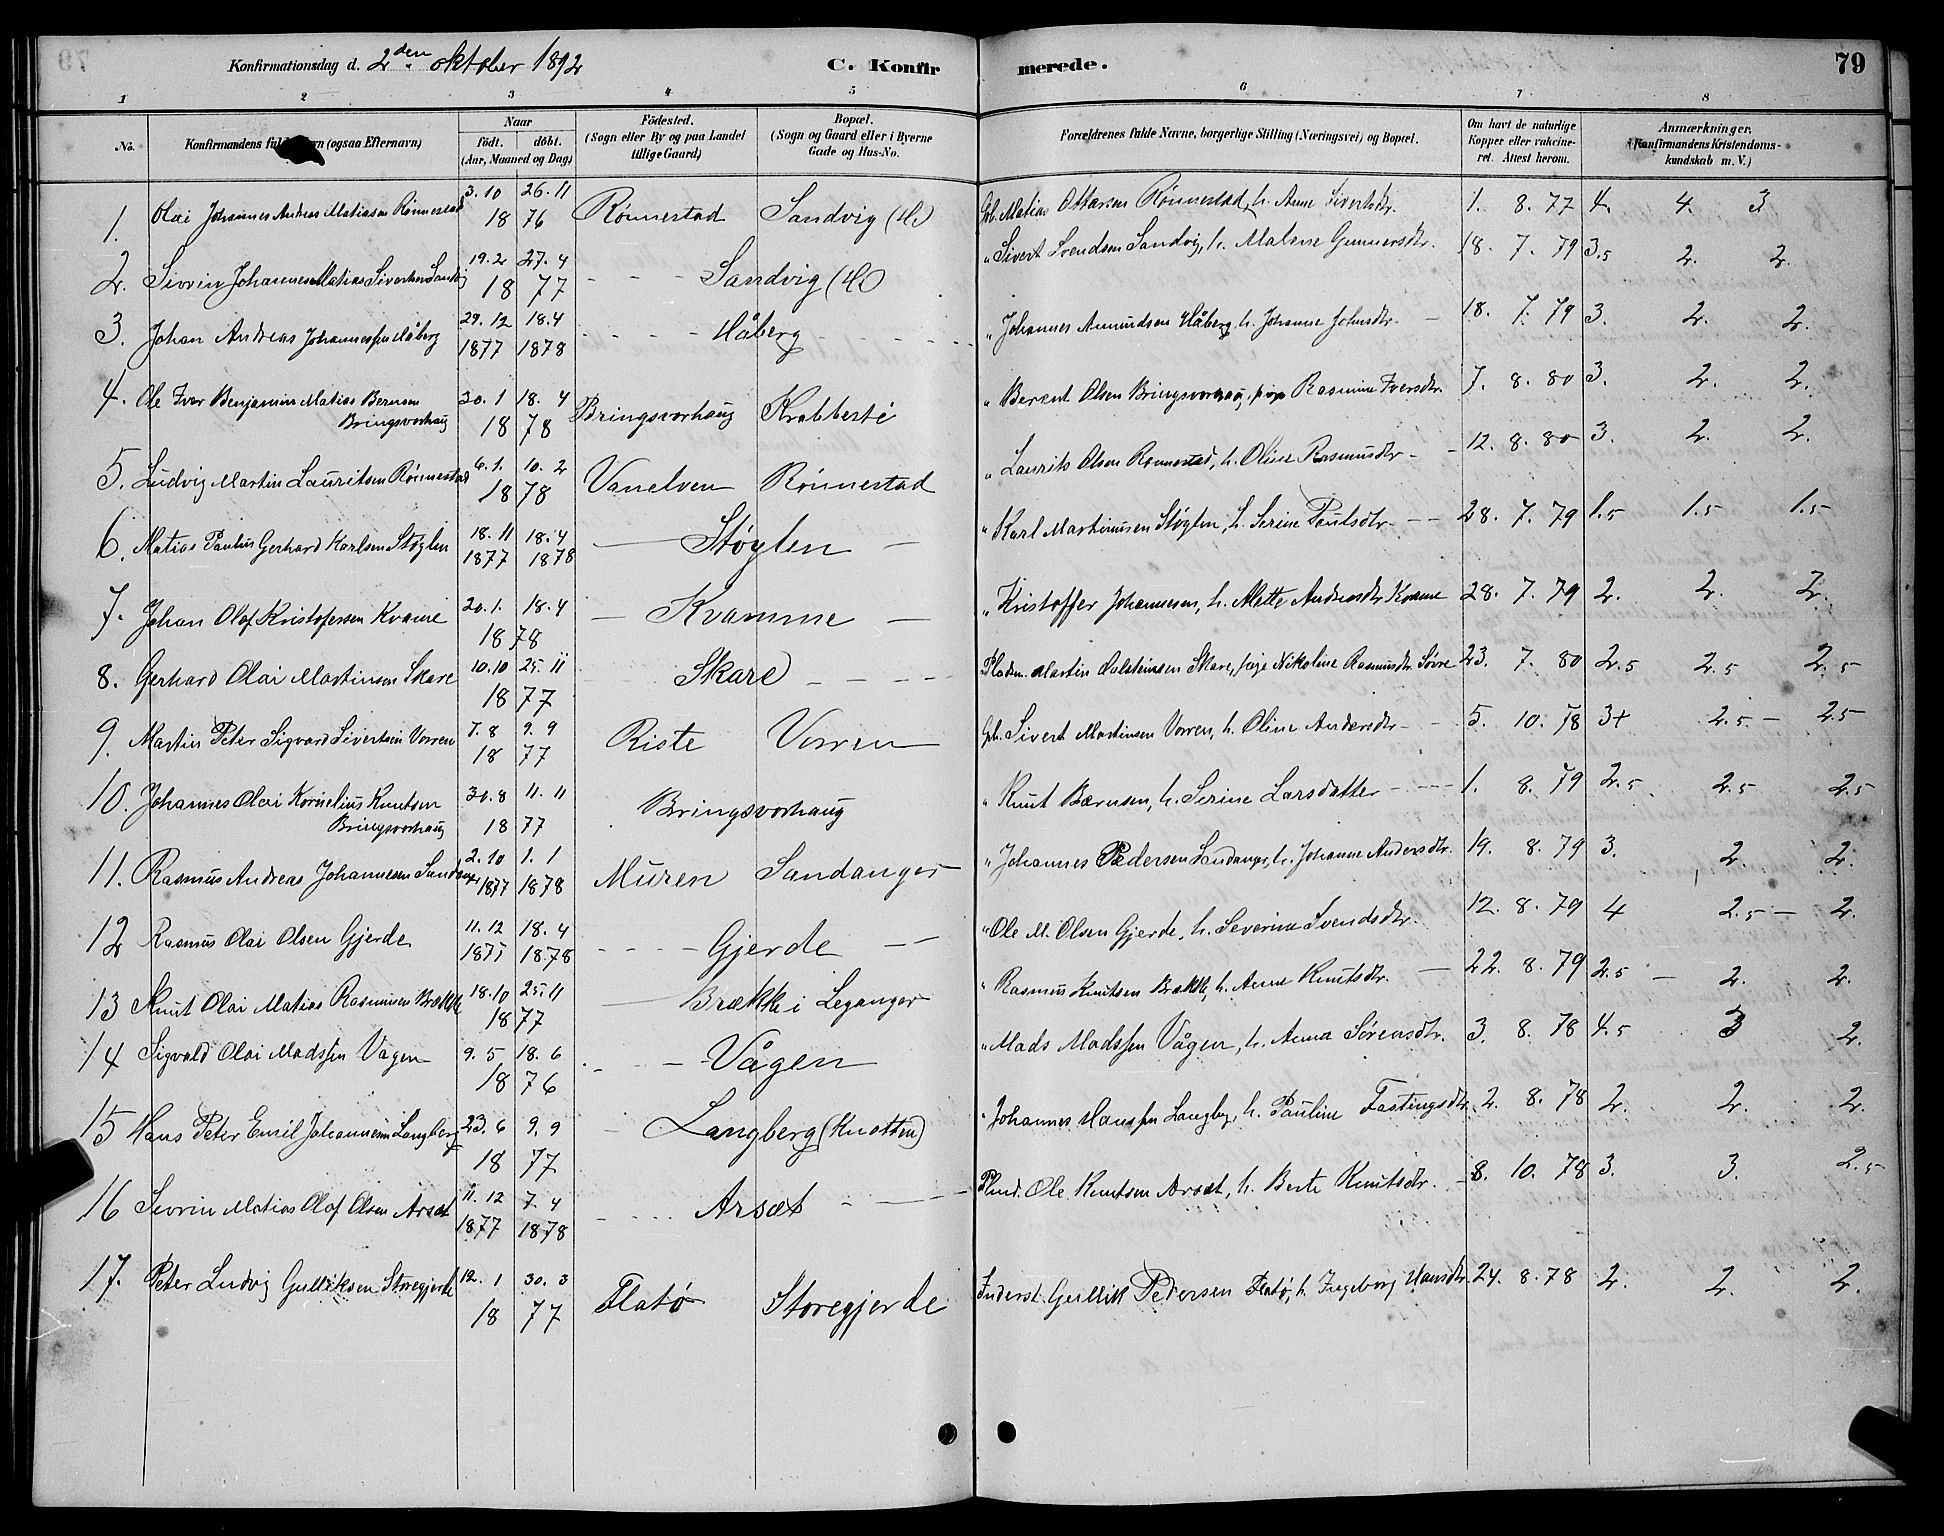 Konfirmationsdag d. 2den oktober 1892 C. Konfirmerede. 79
1 2 3 4 5 6 7 8
No. Konfirmandens fulde Navn (ogsaa Efternavn) Naar født. døbt. (Aar, Maaned og Dag) Födested. (Sogn eller By og paa Landet tillige Gaard) Bopæl. (Sogn og Gaard eller i Byerne Gade og Hus-No. Forældrenes fulde Navne, borgerlige Stilling (Næringsvei) og Bopæl. Om havt de naturlige Kopper eller vakcineret. Attest herom. Anmærkninger. (Konfirmandens Kristendomskundskab m. V.)
1. Olai Johannes Andreas Matiassen Rönnestad 3.10 26.11 1876 Rönnestad Sandvig (H) Gb. Matias Ottarsen Rönnestad, h. Anne Sivertsdtr. 1. 8. 77 4. 4. 3
2. Sivrin Johannes Matias Sivertsen Sandvig 19.2 27.4 1877 - - - Sandvig (H) " Sivert Svendsen Sandvig, h. Malene Gunnersdtr. 18. 7. 79 3.5 2. 2.
3. Johan Andreas Johannessen Håberg 29.12 18.4 1877 1878 - - - - Håberg " Johannes Amundsen Håberg, h. Johanne Johnsdtr. 18. 7. 79 3. 2. 2.
4. Ole Iver Benjamin Matias Bernsen Bringsvorhaug 20.1 18.4 1878 Bringsvorhaug Krabbestè " Berent Olsen Bringsvorhaug, Rasmine Iversdtr. 7. 8. 80 3. 2. 2.
5. Ludvig Martin Lauritsen Rönnestad 6.1. 10.2 1878 Vanelven Rönnestad " Laurits Olsen Rönnestad, h. Oline Rasmusdtr - - 12. 8. 80 3. 2. 2.
6. Matias Paulus Gerhard Karlsen Støylen 18.11 18.4 1877 1878 — Støylen — " Karl Martinusen Støylen, h. Serine Paulsdtr. - - 28. 7. 79 1.5 1.5 1.5
7. Johan Olaf Kristofersen Kvame 20.1. 18.4 1878 — Kvamme — " Kristoffer Johannesen, h. Mette Andersdtr Kvame 28. 7. 79 2. 2. 2.
8. Gerhard Olai Martinsen Skare 10.10 25.11 1877 Skare - - - - Pladsm. Martin Skare, pige Nikoline Rasmusdtr Sørre 23. 7. 80 2.5 2.5 2.5
9. Martin Peter Sigvard Sivertsen Vorren 7.8 9.9 1877 Riste Vorren Gb. Sivert Martinsen Vorren, h. Oline Andersdtr - 5. 10. 78 3+ 2.5 - 2.5
10. Johannes Olai Kornelius Knutsen Bringsvorhaug 30.8 11.11 1877 Bringsvorhaug " Knut Bærnsen, h. Serine Larsdatter - - - 1. 8. 79 2.5 2.5 2.5
11. Rasmus Andreas Johannesen Sandanger 2.10 1.1 1877 1878 Muren Sandanger " Johannes Pedersen Sandanger, h. Johanne Andersdtr. 19. 8. 79 3. 2. 2.
12 Rasmus Olai Olsen Gjerde 11.12 18.4 1877 1878 - - - - Gjerde - - " Ole M. Olsen Gjerde, h. Severine Svendsdtr. 12. 8. 79 4 2.5 - 2.
13 Knut Olai Matias Rasmusen Brække 18.10 25.11 1877 Brække i Leganger " Rasmus Knutsen Brække, h. Anne Knutsdtr. - 22. 8. 79 2.5 - 2. 2.
14 Sigvald Olai Madssen Vågen 9.5 18.6 1876 - - - Vågen " Mads Madssen Vågen, h. Anna Sørensdtr. 3. 8. 78 4.5 3 2.
15 Hans Peter Emil Johannesen Langberg 23.6 9.9 1877 — Langberg (Knotten) " Johannes Hanssen Langberg, h. Pauline Fastingsdtr. 2. 8. 78 2. 2. 2.
16 Sevrin Matias Olaf Olsen Arsæt 11.12 7.4 1877 1878 - - - Arsæt - — Plmd. Ole Knutsen Arsæt, h. Berte Knutsdtr. - 8. 10. 78 3. 3. 2.5
17. Peter Ludvig Gulliksen Storegjerde 12.1 30.3 1877 Flatø Storegjerde Inderst Gullik Pedersen Flatø, h. Ingeborg Hansdtr. 24. 8. 78 2. 2. 2.